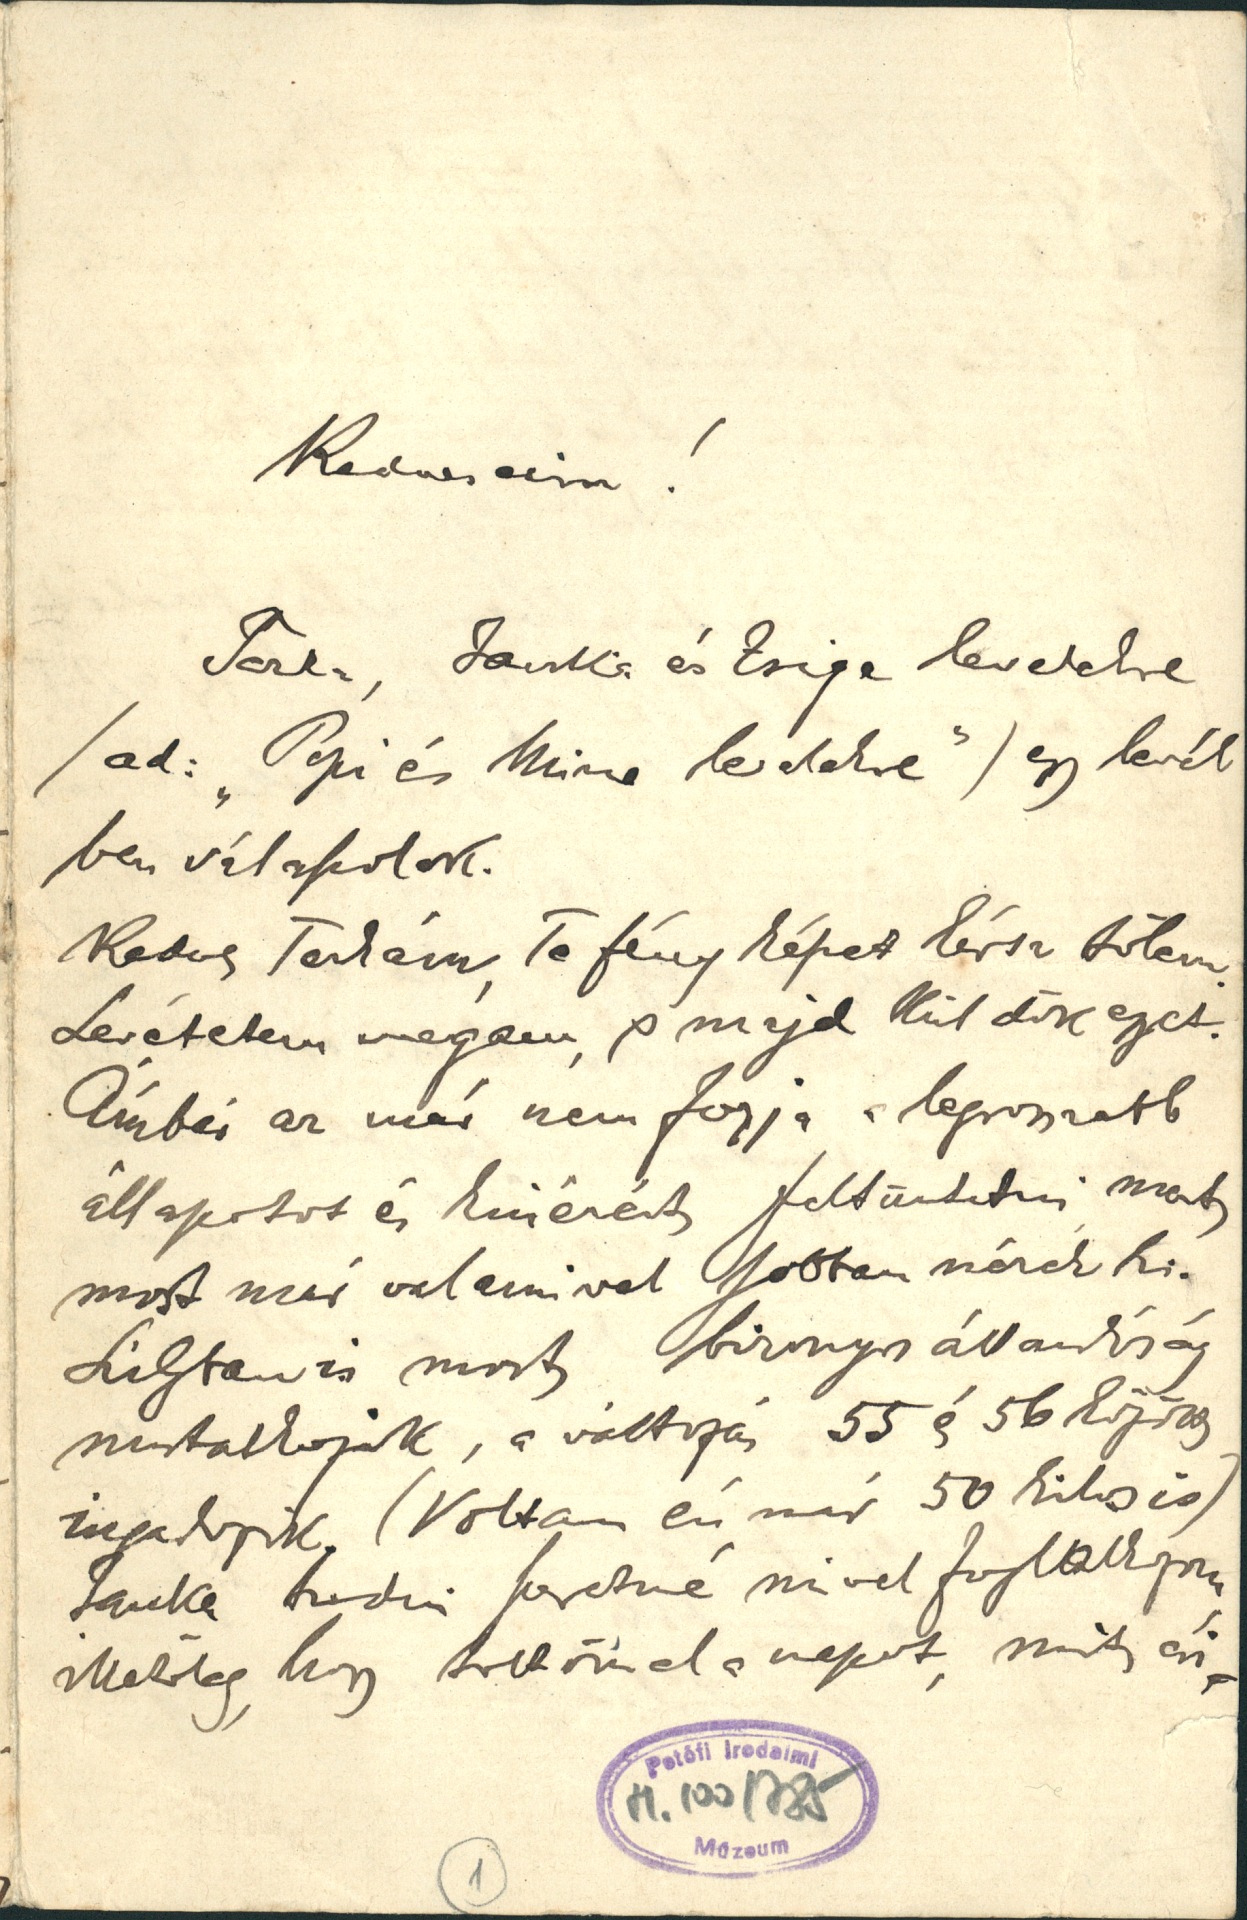 Kedveseim!
Terka, Janka és Zsiga levelekre
/ad: „Pepi és Mina levelekre") egy levél
ben válaszolok.
Kedves Terkám, Te fényképet kérsz tőlem.
Levétetem magam, s majd küldök egyet.
Ámbár az már nem fogja a legrosszabb
állapotot és kinézést feltüntetni, mert
most már valamivel jobban nézek ki.
Súlyban is most bizonyos állandóság
mutatkozik, a változás 55 és 56 között
ingadozik. (Voltam én már 50 kilós is)
Janka tudni szeretné mivel foglalkozom,
illetőleg, hogy töltöm el a napot, mint
Petőfi Irodalmi
M. 100/785
Múzeum
1